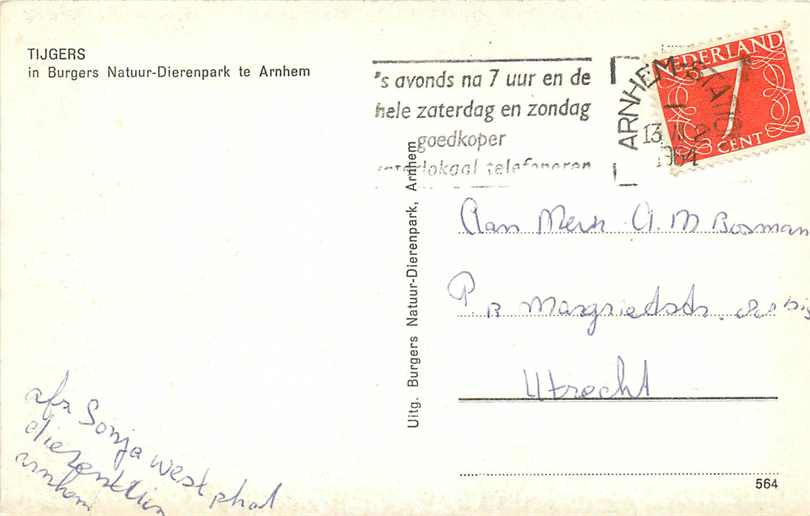 TIJGERS
in Burgers Natuur-Dierenpark te Arnhem
's avonds na 7 uur en de
hele zaterdag en zondag
goedkoper
interlokaal telefoneren
ARNHEM-STATION
1
13
1964
NEDERLAND
7
CENT
Uitg. Burgers Natuur-Dierenpark, Arnhem
Aan A. M Bosman
P.B Margrietstr.
Utrecht
afz Sonja Westphal
arnhem
564